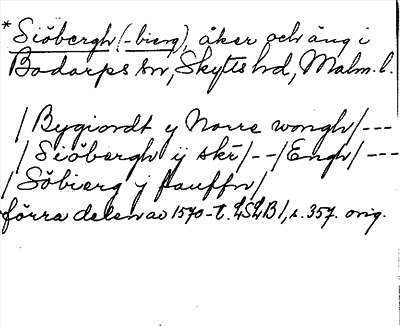 *Siöbergh (-bierg), åker och äng i
Bodarps sn, Skytts hd, Malm. l.
/Bygiordt y Norre wongh/---
/Siöbergh ÿ skr̄/--/Engh/---
/Söbierg j hauffn/
förra delen av 1570-t. LSLB1, s. 357. orig.